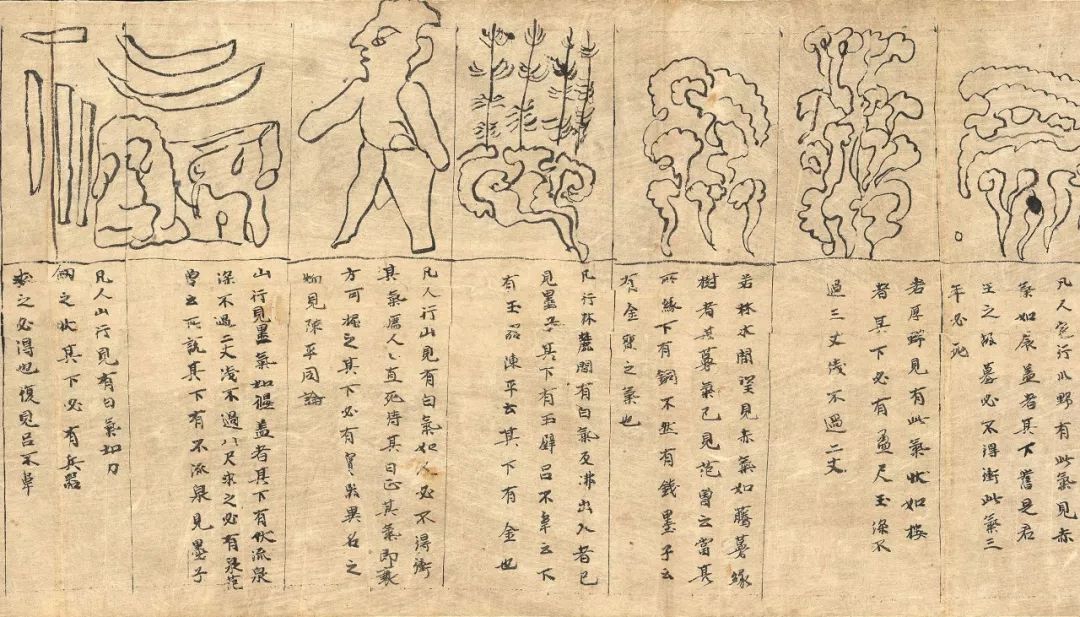 凡人宅行山野有此氣見赤
氣如辰蓋者其下舊是君
王之故墓必不得衝此氣三
年必死
若厚野見有此氣狀如樓
者其下必有盈尺玉深不
過三丈淺不過二丈
若林木間望見赤氣如騰蔓緣
樹者其蔓氣已見范曾云當其
所緣下有銅不然有錢墨子云
有金寶之氣也
凡行林麓間有白氣及沸出入者已
見墨子其下有玉璧呂不韋云下
有玉器陳平云其下有金也
凡人行山見有白氣如人必不得衝
其氣厲人人直死待其日正其氣即衰
方可掘之其下必有寶異名之
物見陳平同論
山行見墨氣如偃蓋者其下有伏流泉
深不過二丈淺不過八尺求之必有泉范
曾云所說其下有不流泉見墨子
凡人山行見有白氣如刀
劒之狀其下必有兵器
求之必得也復見呂不韋